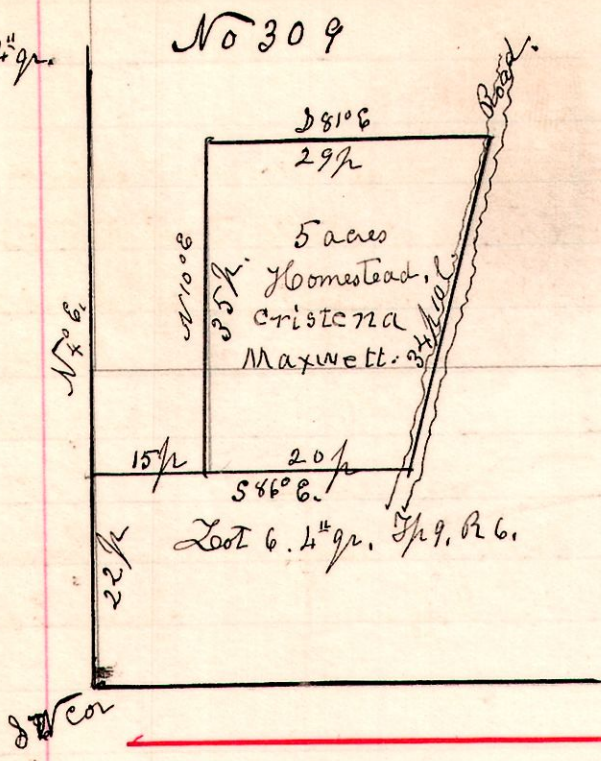 No 309
4" qr.
S 81° E
29 p
N 10° E
35 p.
5 acres
Homestead.
Cristena
Maxwell.
34 p
Road.
N 4° E.
15 p
20 p
S 86° E.
Lot 6. 4" qr. Tp 9. R 6.
22 p
S W Cor